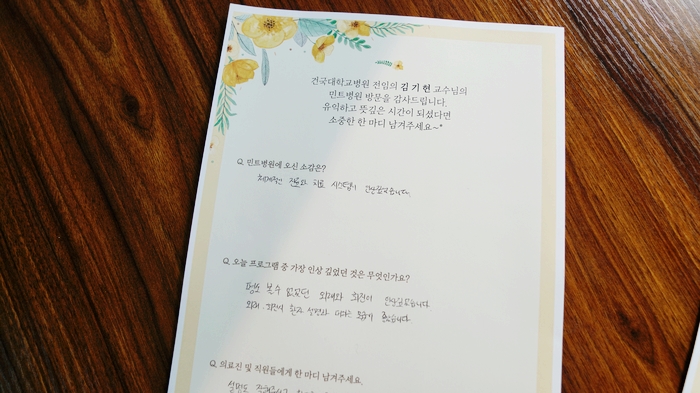 건국대학교병원 전임의 김기현 교수님의
민트병원 방문을 감사드립니다.
유익하고 뜻깊은 시간이 되셨다면
소중한 한 마디 남겨주세요~*
Q. 민트병원에 오신 소감은?
체계적인 진료와 치료 시스템이 인상깊었습니다.
Q. 오늘 프로그램 중 가장 인상 깊었던 것은 무엇인가요?
평소 볼수 없었던 외래와 회진이 인상깊었습니다
외래, 회진시 환자 설명과 대하는 모습이 좋았습니다.
Q. 의료진 및 직원들에게 한 마디 남겨주세요.